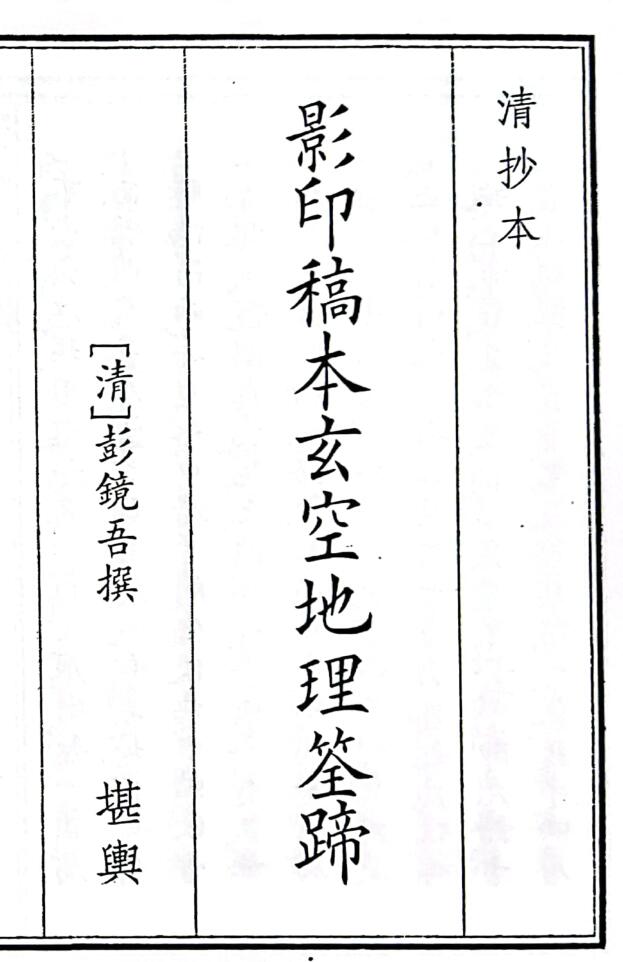 清抄本
影印稿本玄空地理筌蹄
[清]彭鏡吾撰 堪輿